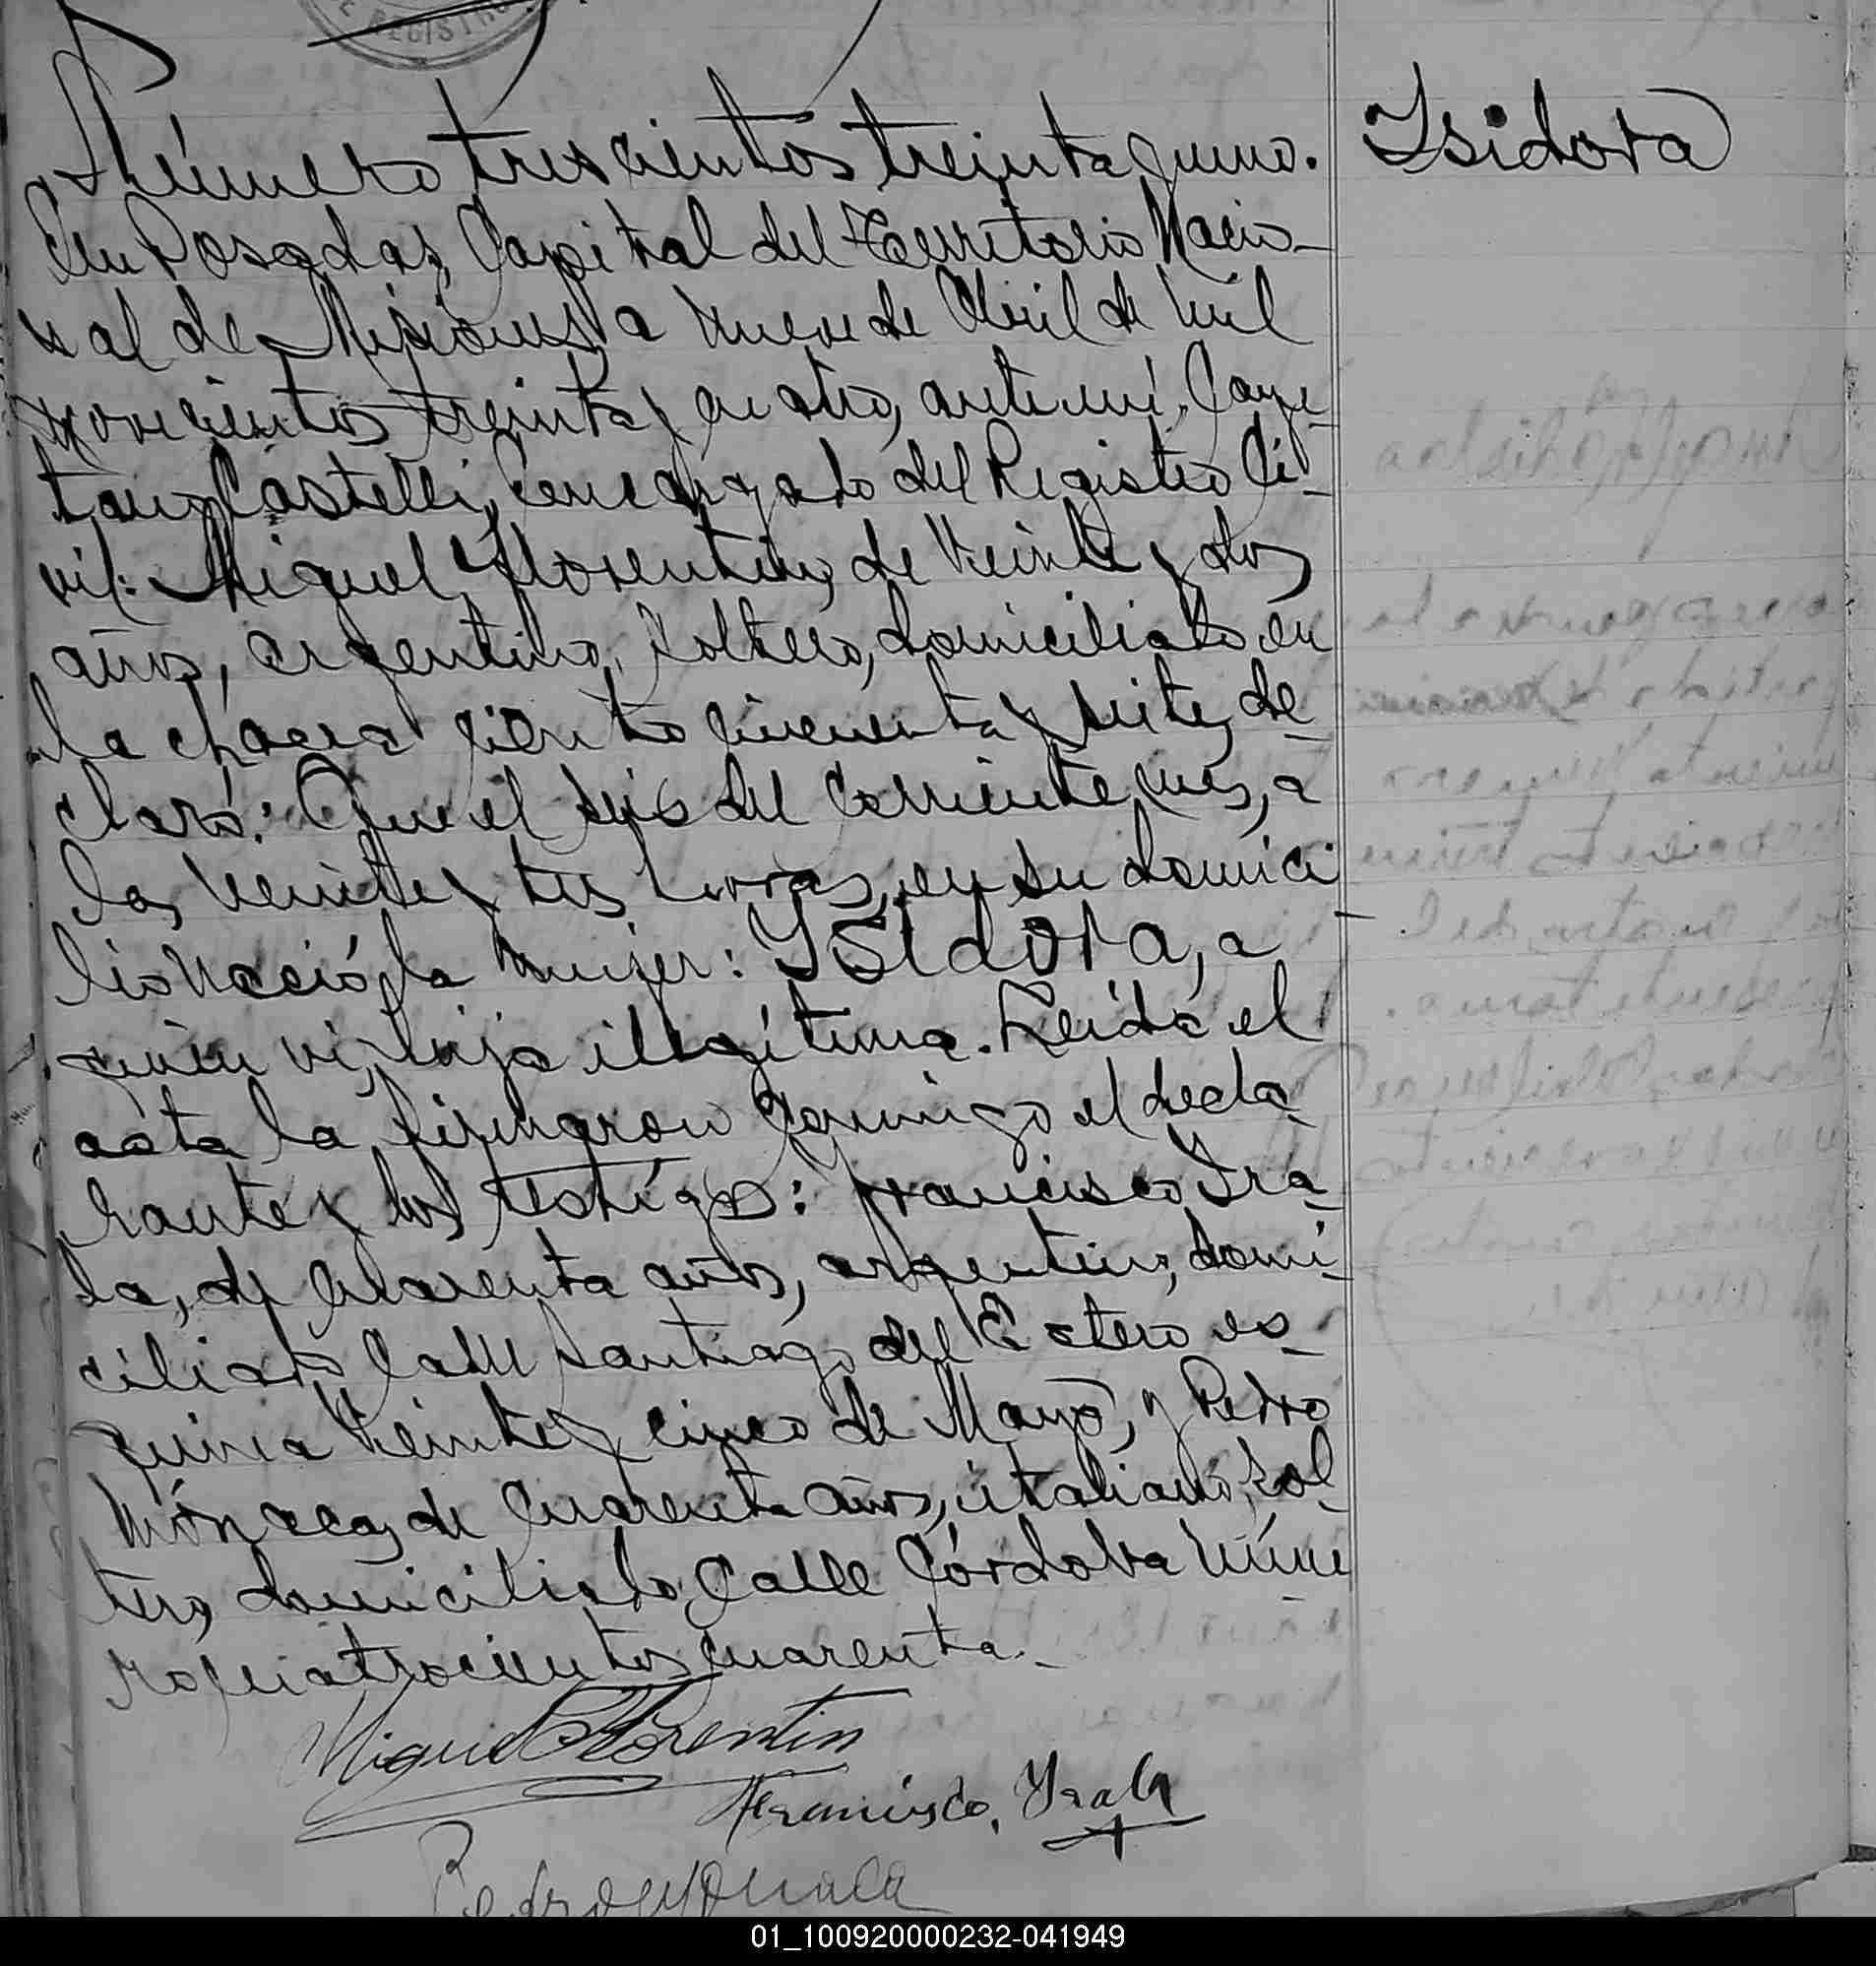 REGISTRO
Número trescientos treinta y uno.
Isidora
En Posadas, Capital del Territorio Nacio-
nal de Misiones, a nueve de Abril de mil
novecientos treinta y cuatro, ante mí, Caye-
tano Castelli, Encargado del Registro Ci-
vil: Miguel Florentin, de veinte y dos
años, argentino, soltero, domiciliado en
la chacra ciento cincuenta y siete, de-
claró: Que el seis del corriente mes, a
las veinte y tres horas, en su domici-
lio nació la mujer: Ysidora, a
quién vi, hija ilegítima. Leída el
acta la firmaron conmigo el decla-
rante y los testigos: Francisco Yra-
la, de cuarenta años, argentino, domi-
ciliado calle Santiago del Estero es-
quina Veinte y cinco de Mayo, y Pedro
Mónaca, de cuarenta años, italiano, sol-
tero, domiciliado calle Córdoba núme
ro cuatrocientos cuarenta.-
Miguel Florentin
Francisco, Yrala
Pedro Monaca
01_100920000232-041949